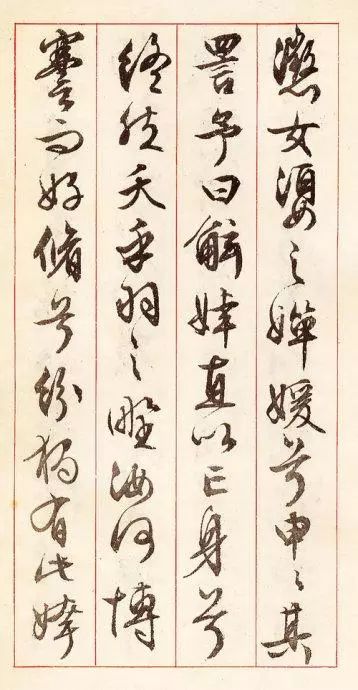 懲女嬃之嬋媛兮申申其
詈予曰鮌婞直以亡身兮
終然夭乎羽之野汝何博
謇而好脩兮紛獨有此姱